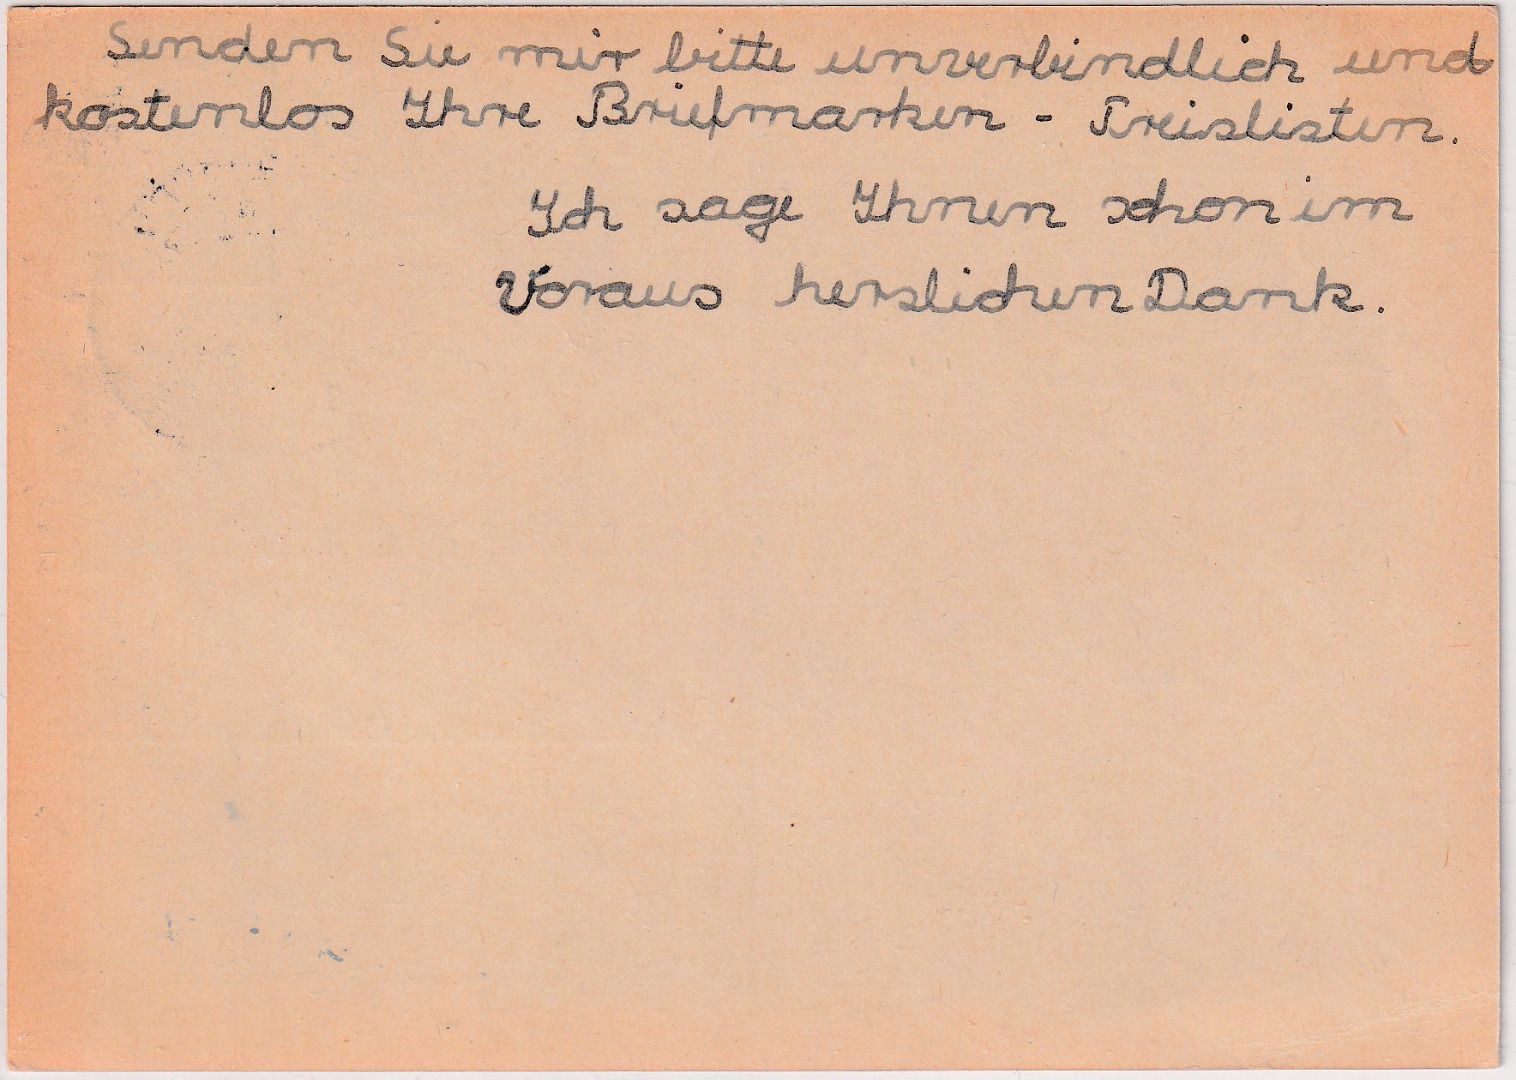 Senden Sie mir bitte unverbindlich und
kostenlos Ihre Briefmarken - Preislisten.
Ich sage Ihnen schon im
Voraus herzlichen Dank.